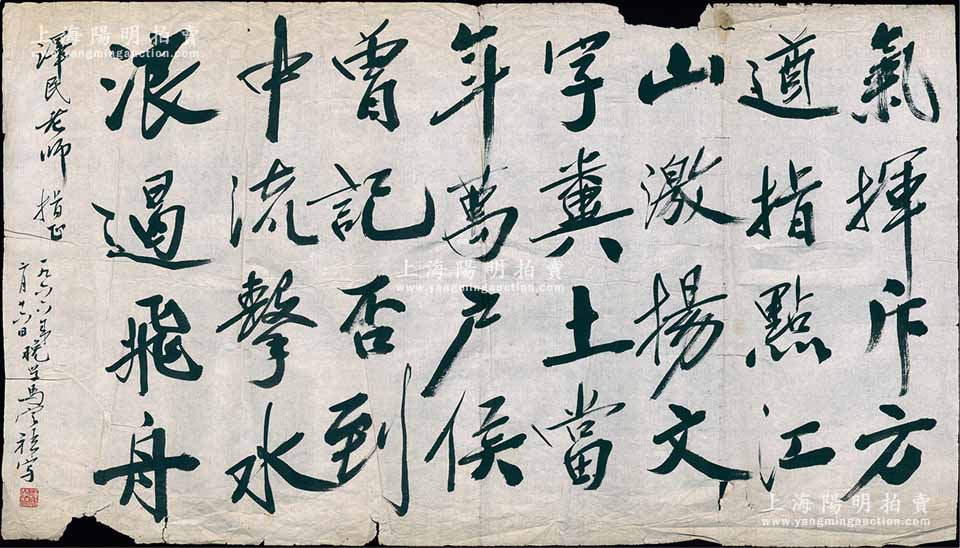 氣揮斥方
遒指點江
山激揚文
字糞土當
年萬户侯
曾記否到
中流擊水
浪遏飛舟
澤民老师 指正
一九六六年
月十六日晚学馬
上海陽明拍賣
www.yangmingauction.com
上海陽明拍賣
www.yangmingauction.com
上海陽明拍賣
www.yangmingauction.com